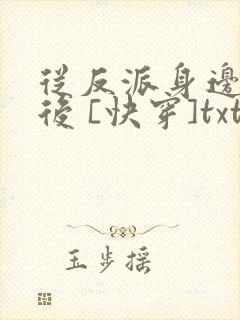 從反派身邊
後 [快穿]txt
玉步搖